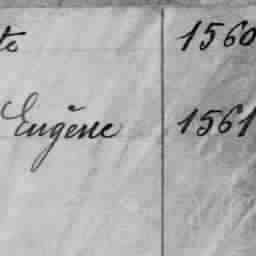 te 1560
Eugène 1561